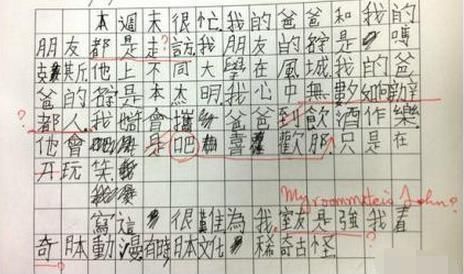 本週末很忙我的爸爸和我的
朋友都是走?訪我朋友的名字是
克斯他上不同大學在風城我的爸
爸的名字是本杰明我心中無數如
?都人我會攜爸爸到飲酒作樂
他會是吧喜歡那只是在
开玩笑
My roommate is John?
寫這很難為我室友是強我看
奇日本動漫有時日本文化稀奇古怪